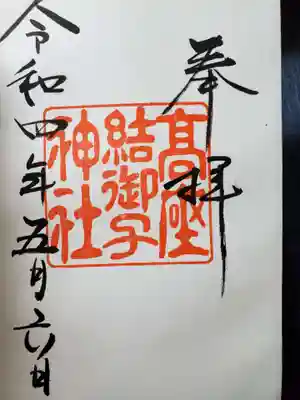 奉拝
高座
結御子
神社
令和四年五月六日